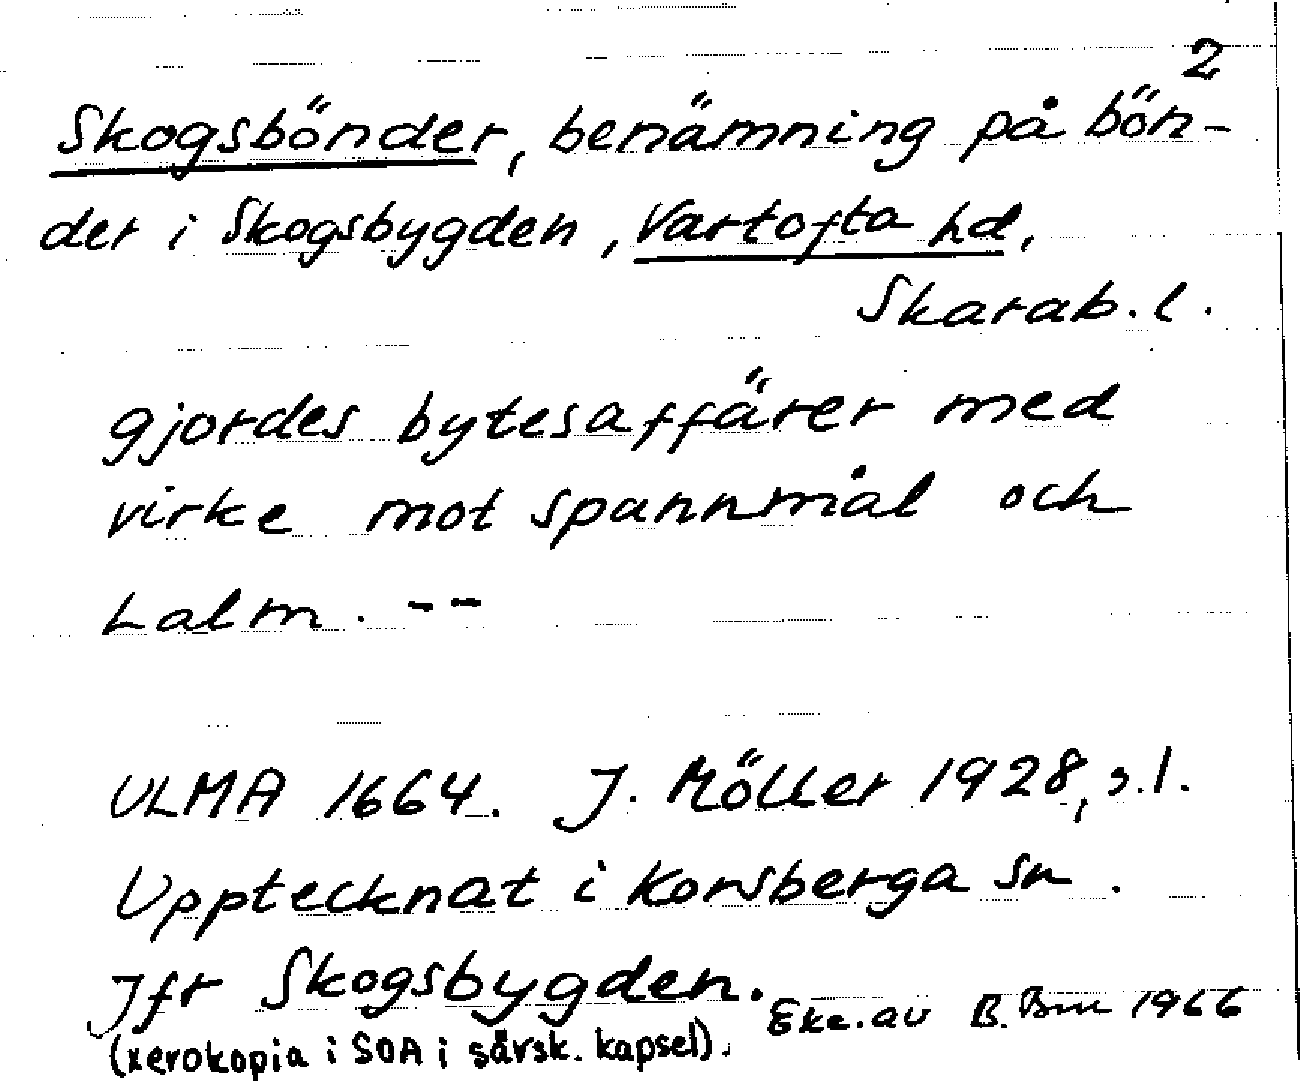 2
Skogsbönder, benämning på bön-
der i Skogsbygden, Vartofta hd,
Skarab. l.
gjordes bytesaffärer med
virke mot spannmål och
halm. --
ULMA 1664. J. Möller 1928, s.1.
Upptecknat i Korsberga sn.
Jfr Skogsbygden.
Exc. av B. 1966
(xerokopia i SOA i särsk. kapsel).